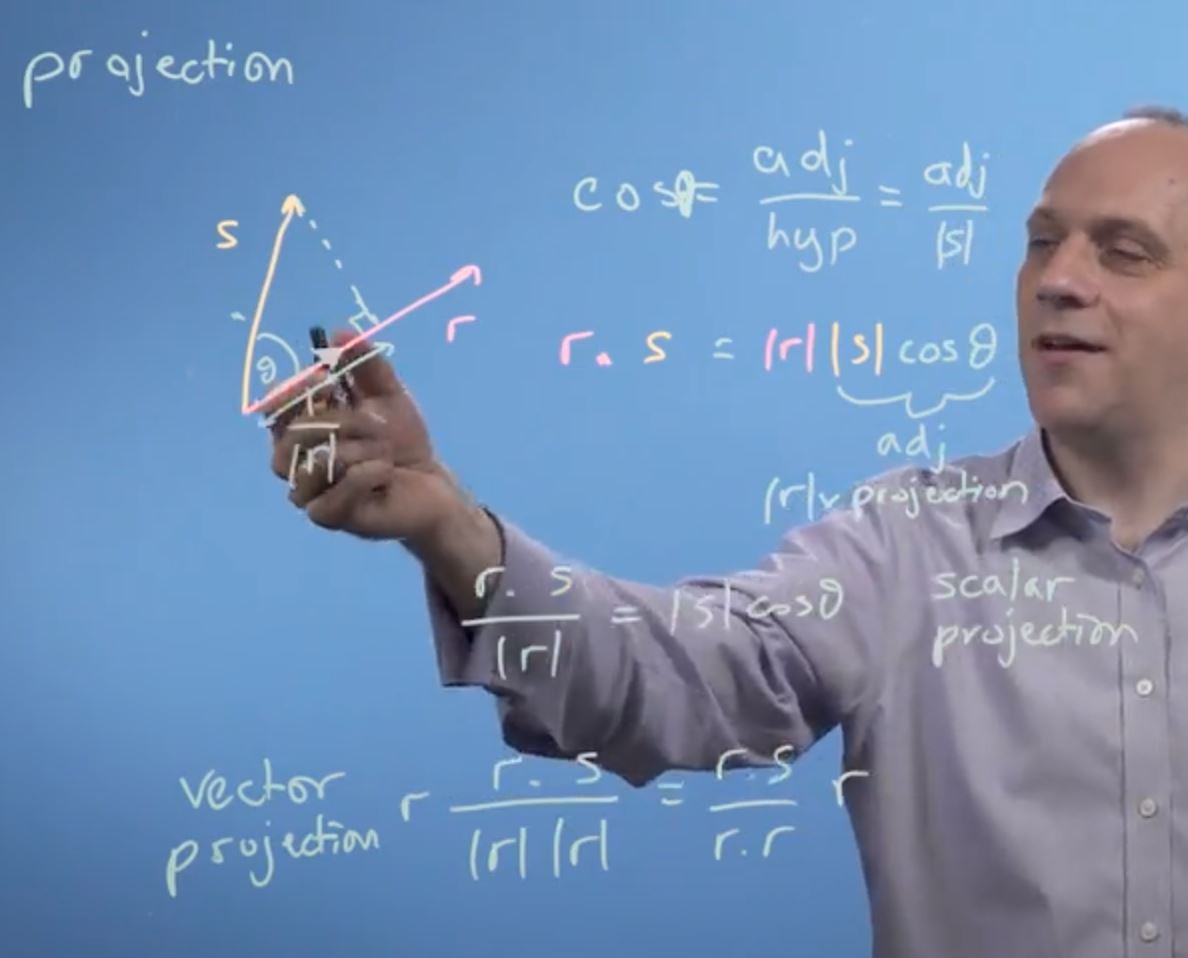 projection
cosθ = adj/hyp = adj/|s|
s
r
θ
r/|r|
r. s = |r||s| cosθ
adj
|r|x projection
r. s/|r| = |s| cosθ
scalar
projection
vector
projection
r r. s/|r| |r| = r.s/r.r r